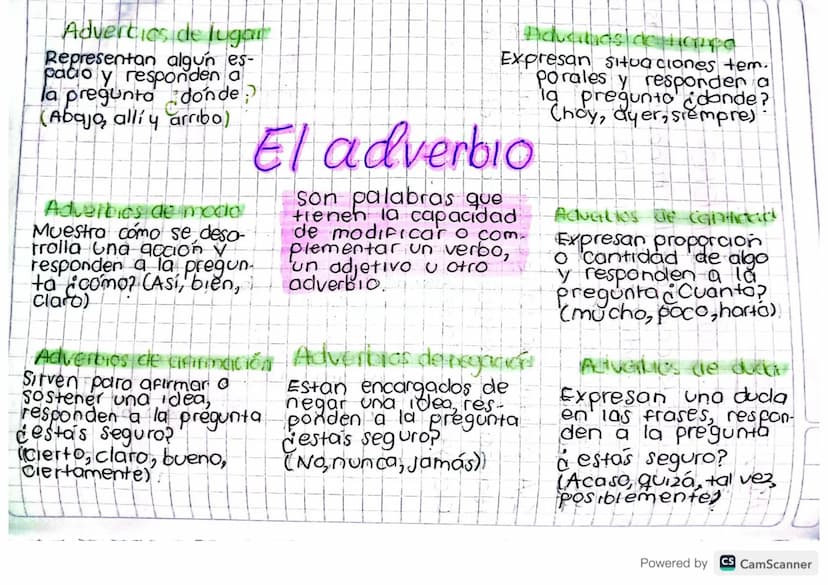 Adverbios de lugar
Representan algún es-
pacio y responden a
la pregunta ¿dónde?
(Abajo, allí y arriba)
Adverbios de tiempo
Expresan situaciones tem-
porales y responden a
la pregunta ¿donde?
(hoy, ayer, siempre)
El adverbio
son palabras que
tienen la capacidad
de modificar o com-
plementar un verbo,
un adjetivo u otro
adverbio.
Adverbios de modo
Muestra cómo se desa-
rrolla una acción y
responden a la pregun-
ta ¿cómo? (Así, bien,
claro)
Adverbios de cantidad
Expresan proporcion
o cantidad de algo
y responden a la
pregunta ¿Cuanto?
(mucho, poco, harto)
Adverbios de afirmación
Sirven para afirmar o
sostener una idea,
responden a la pregunta
¿estás seguro?
(cierto, claro, bueno,
ciertamente)
Adverbios de negación
Estan encargados de
negar una idea, res-
ponden a la pregunta
¿estás seguro?
(No, nunca, jamás)
Adverbios de duda
Expresan una duda
en las frases, respon-
den a la pregunta
¿estás seguro?
(Acaso, quizá, tal vez,
posiblemente)
Powered by CS CamScanner